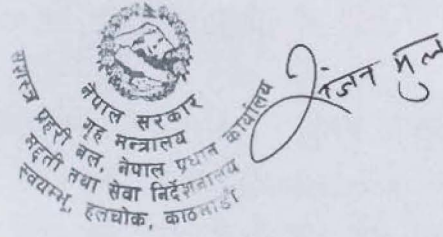 नेपाल सरकार
गृह मन्त्रालय
सशस्त्र प्रहरी बल, नेपाल प्रधान कार्यालय
भर्ती तथा सेवा निर्देशनालय
स्वयम्भू, हलचोक, काठमाडौं